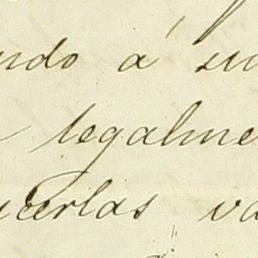 ndo á su
legalme
cerlas va